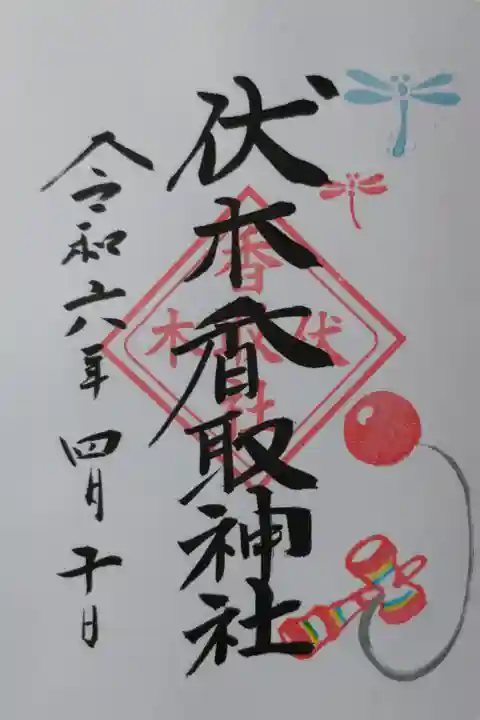 伏木香取神社
令和六年四月十日
香取
伏木
社